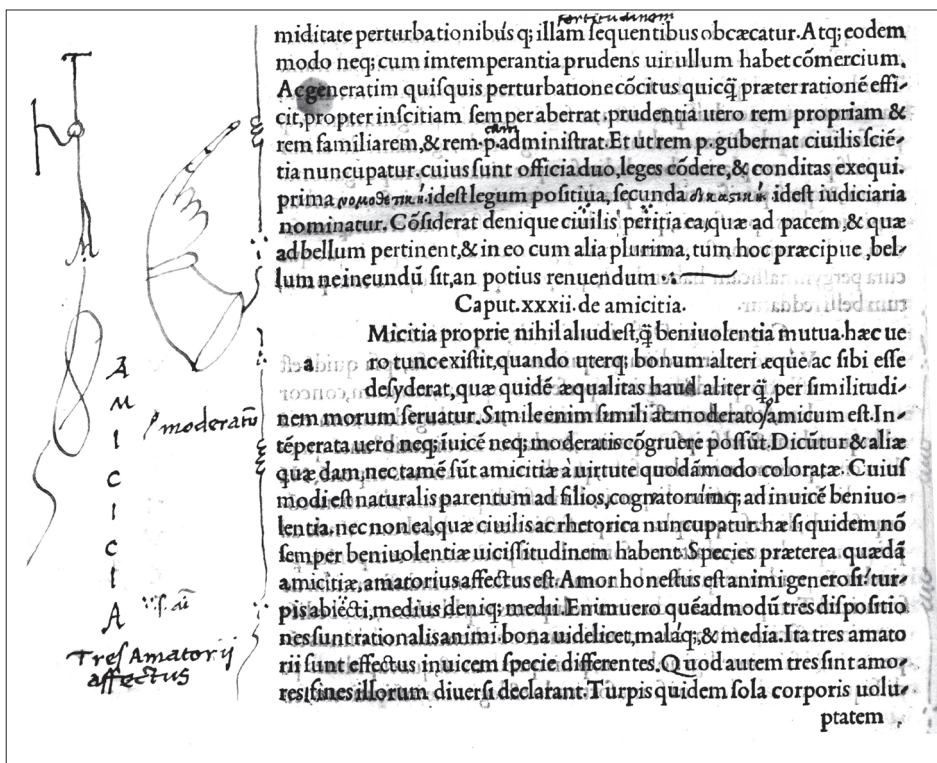 fortitudinem
miditate perturbationibus q; illam ſequentibus obcæcatur. Atq; eodem
modo neq; cum imtemperantia prudens uir ullum habet cōmercium.
Ac generatim quiſquis perturbatione cōcitus quicq̄ præter rationē effi-
cit, propter inſcitiam ſemper aberrat. prudentia uero rem propriam &
cam
rem familiarem, & rem. p. adminiſtrat. Et ut rem p. gubernat ciuilis ſciē-
tia nuncupatur. cuius ſunt officia duo, leges cōdere, & conditas exequi.
prima νομοθετικὴ idest legum poſitiua, ſecunda δικαστικὴ idest iudiciaria
nominatur. Cōſiderat denique ciuilis peritia ea, quæ ad pacem, & quæ
ad bellum pertinent, & in eo cum alia plurima, tum hoc præcipue, bel-
lum ne ineundū ſit, an potius renuendum.
Caput. xxxii. de amicitia.
a
Micitia proprie nihil aliud eſt, q̄ beniuolentia mutua. hæc ue
ro tunc exiſtit, quando uterq; bonum alteri æque ac ſibi eſſe
deſyderat, quæ quidē æqualitas haud aliter q̄ per ſimilitudi-
nem morum ſeruatur. Simile enim ſimili ac moderato/amicum eſt. In-
tēperata uero neq; īuicē neq; moderatis cōgruere poſſūt. Dicūtur & aliæ
quædam, nec tamē ſūt amicitiæ à uirtute quodāmodo coloratæ. Cuiuſ
modi eſt naturalis parentum ad filios, cognatorumq; ad inuicē beniuo-
lentia. nec non ea, quæ ciuilis ac rhetorica nuncupatur. hæ ſi quidem nō
ſemper beniuolentiæ uiciſſitudinem habent. Species præterea quædā
amicitiæ, amatorius affectus eſt. Amor honeſtus eſt animi generoſi: tur-
pis abiecti, medius deniq; medii. Enimuero quēadmodū tres diſpoſitio
nes ſunt rationalis animi. bona uidelicet, malaq;, & media. Ita tres amato
rii ſunt effectus inuicem ſpecie differentes. Quod autem tres ſint amo-
res, fines illorum diuerſi declarant. Turpis quidem ſola corporis uolu-
ptatem
moderatū
A
M
I
C
I
C
I
A
Treſ Amatorij
affectus